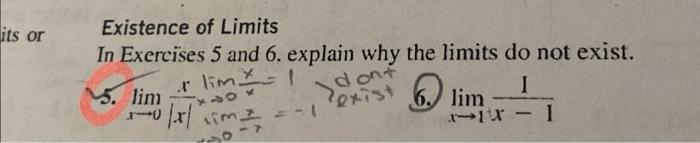 its or
Existence of Limits
In Exercises 5 and 6. explain why the limits do not exist.
5. lim x→0 x/|x|
lim x→0 x/x = 1
lim →0 x/-x = -1
dont exist
6. lim x→1 1/x − 1